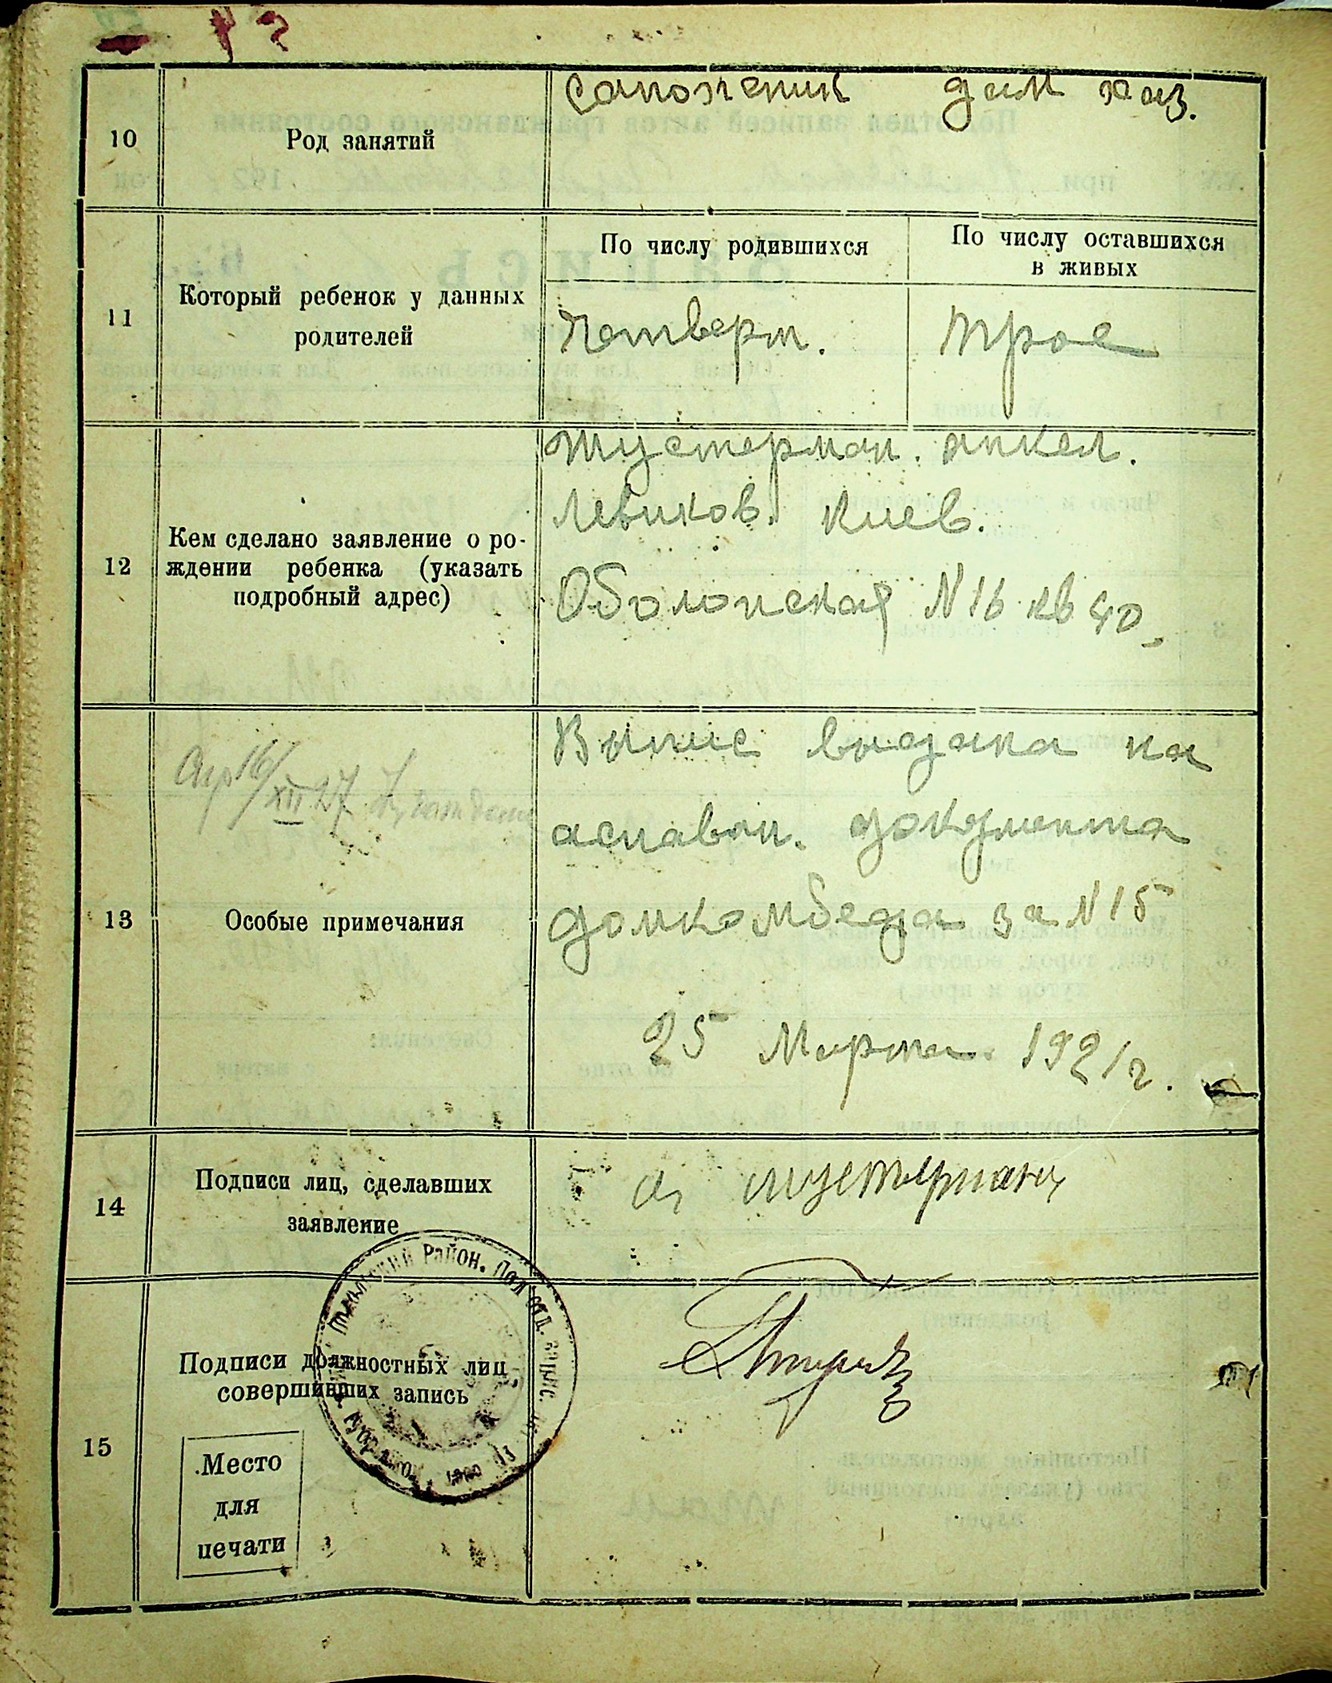 10
Род занятий
сапожник дом хоз.
11
Который ребенок у данных
родителей
По числу родившихся
По числу оставшихся
в живых
Четверт.
трое
12
Кем сделано заявление о ро-
ждении ребенка (указать
подробный адрес)
Шустерман. Анкел.
Левиков. Киев.
Оболонская N 16 кв 40
13
Особые примечания
16/XII 27
Выпис выдана на
основан. документа
домкомбеда за N 15
25 Марта 1921 г.
14
Подписи лиц, сделавших
заявление
а, шустерман
15
Подписи должностных лиц,
совершивших запись
Район. Под отд.
Место
для
печати